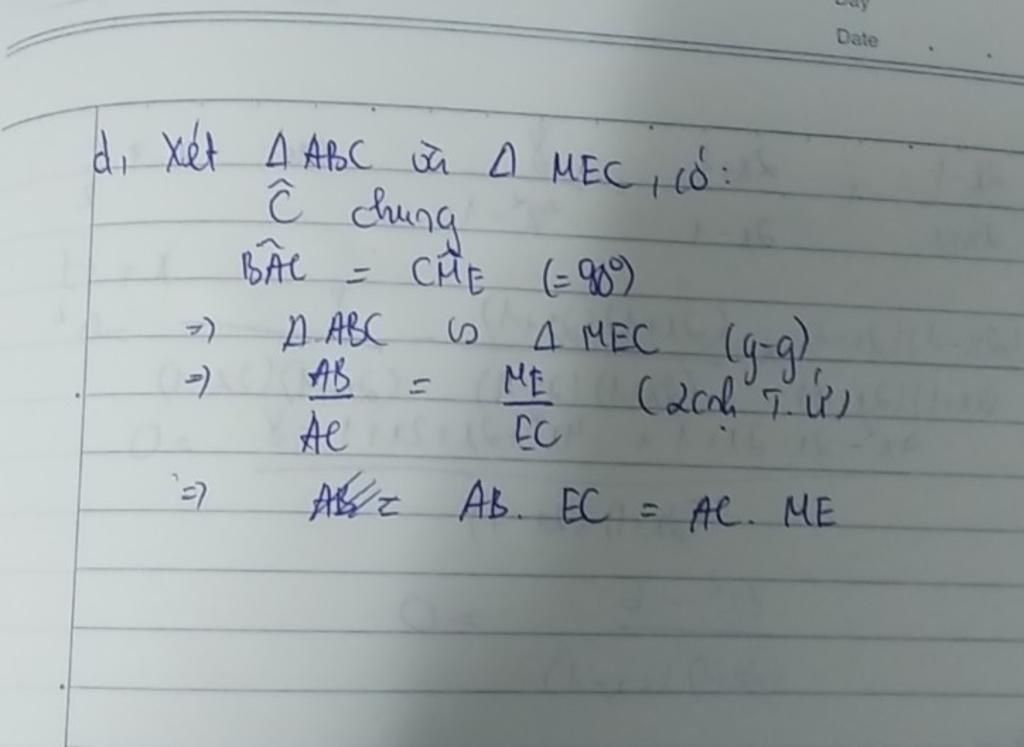 Day
Date
d, Xét Δ ABC và Δ MEC, có:
Ĉ chung
BÂC = CM̂E (= 90°)
=> Δ ABC ∽ Δ MEC (g-g)
=> AB/AC = ME/EC (2 cạnh T. Ứ)
=> AB. EC = AC. ME